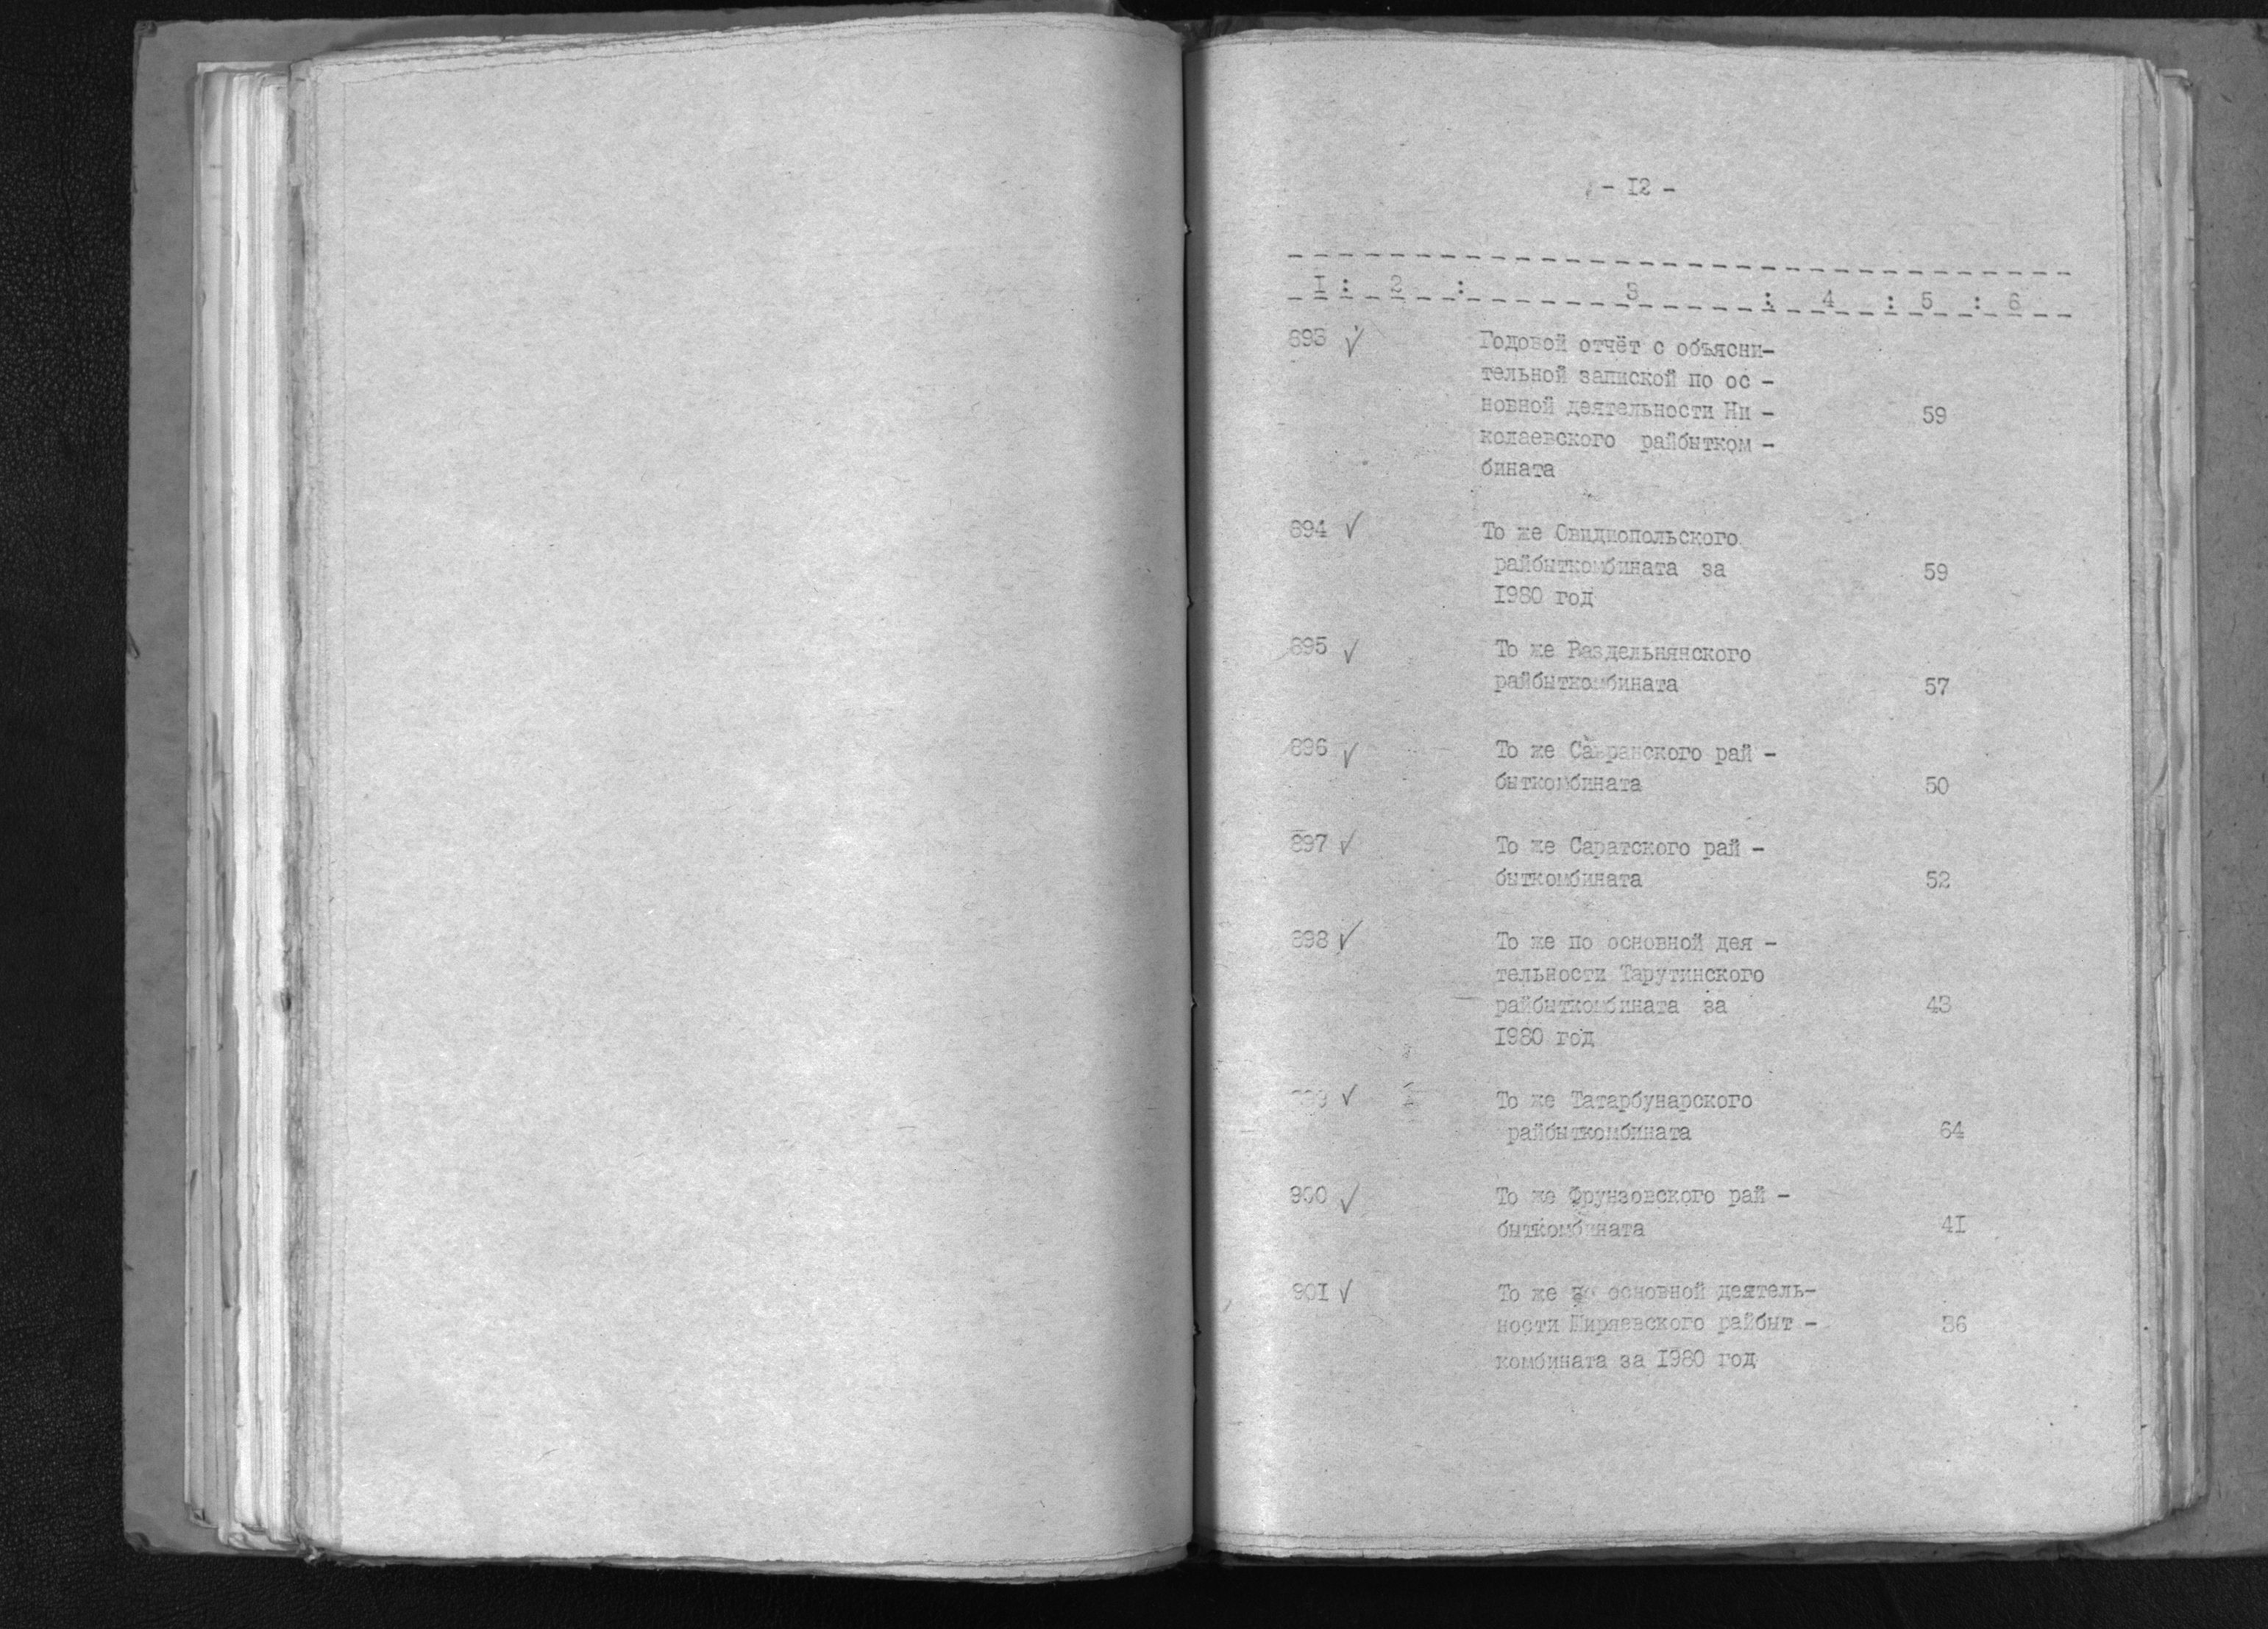 - I2 -
I : 2 : 3 : 4 : 5 : 6
893 ✓ Годовой отчёт с объясни-
тельной запиской по ос -
новной деятельности Ни - 59
колаевского райбытком -
бината
894 ✓ То же Овидиопольского
райбыткомбината за 59
I980 год
895 ✓ То же Раздельнянского
райбыткомбината 57
896 ✓ То же Савранского рай -
быткомбината 50
897 ✓ То же Саратского рай -
быткомбината 52
898 ✓ То же по основной дея -
тельности Тарутинского
райбыткомбината за 43
I980 год
899 ✓ То же Татарбунарского
райбыткомбината 64
900 ✓ То же Фрунзовского рай -
быткомбината 4I
90I ✓ То же по основной деятель-
ности Ширяевского райбыт - 36
комбината за I980 год